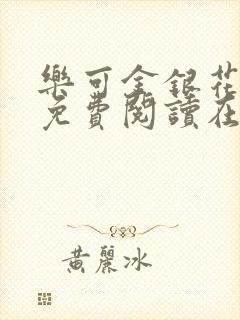 樂可金銀花
免費閱讀在
黃麗冰